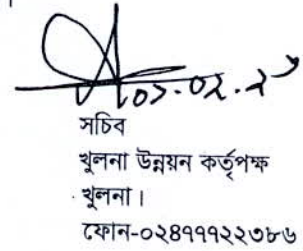 ০১.০২.২
সচিব
খুলনা উন্নয়ন কর্তৃপক্ষ
খুলনা।
ফোন-০২৪৭৭৭২২৩৮৬